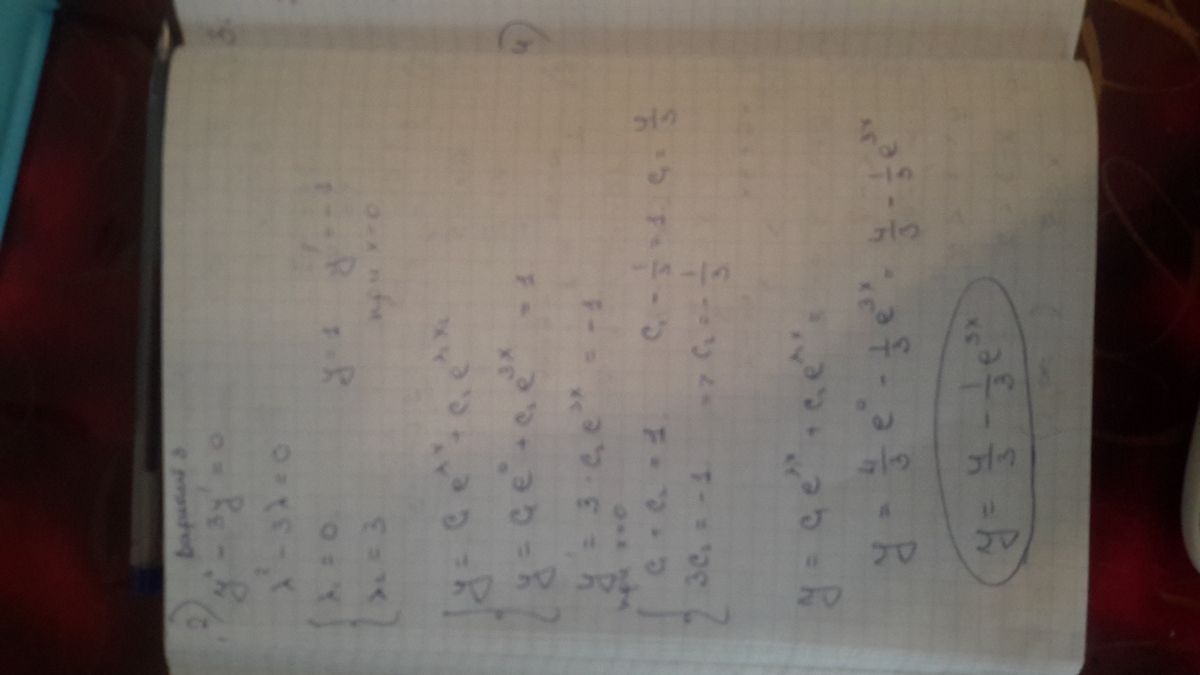 2) вариант 3
y'' - 3y' = 0
λ² - 3λ = 0
{ λ₁ = 0 y = 1 y' = -1
{ λ₂ = 3 при x = 0
{ y = C₁ e^λx + C₂ e^λx₂
{ y = C₁ e⁰ + C₂ e^3x = 1
y' = 3 · C₂ e^3x = -1
при x=0
{ C₁ + C₂ = 1 C₁ - 1/3 = 1 C₁ = 4/3
{ 3C₂ = -1 => C₂ = - 1/3
y = C₁ e^λx + C₂ e^λx =
y = 4/3 e⁰ - 1/3 e^3x = 4/3 - 1/3 e^3x
y = 4/3 - 1/3 e^3x
3.
4)